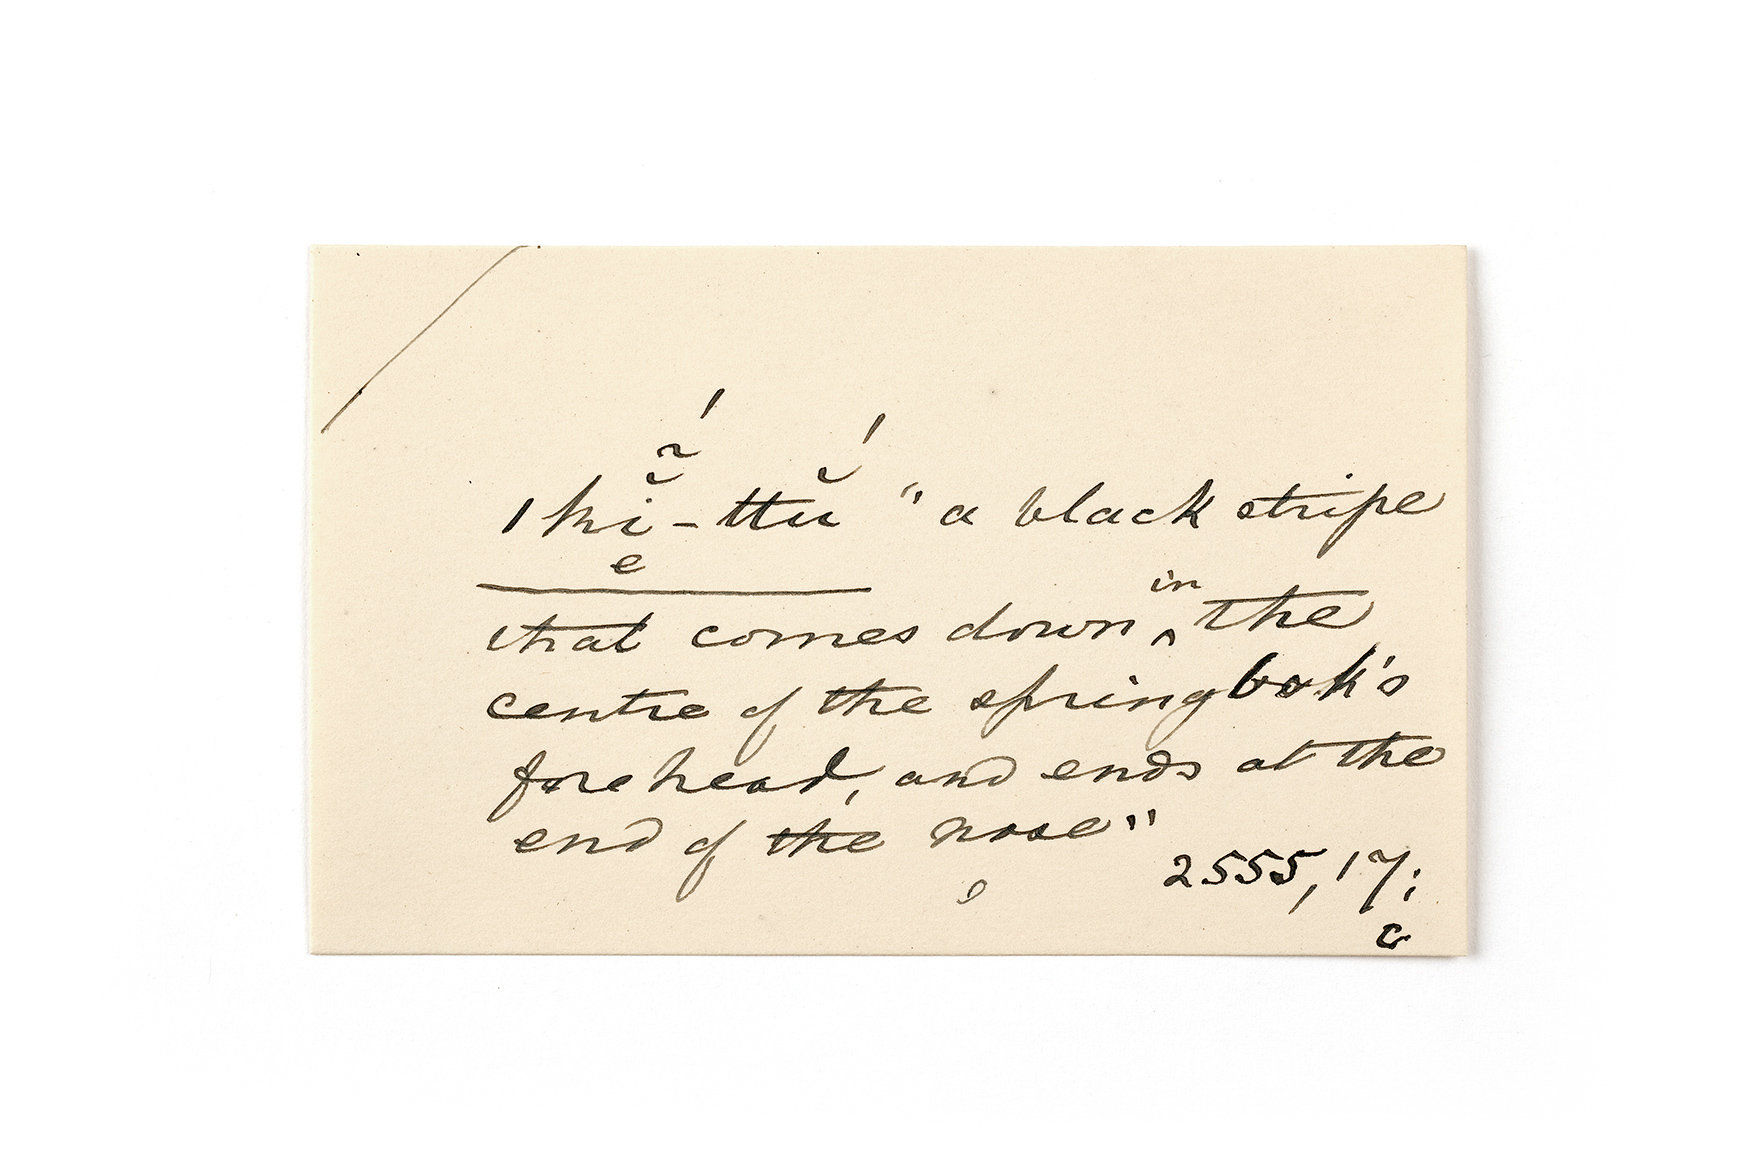 |kĭ̃́-ttŭ́ "a black stripe
that comes down in the
centre of the springbok's
forehead, and ends at the
end of the nose"
2555, 17;